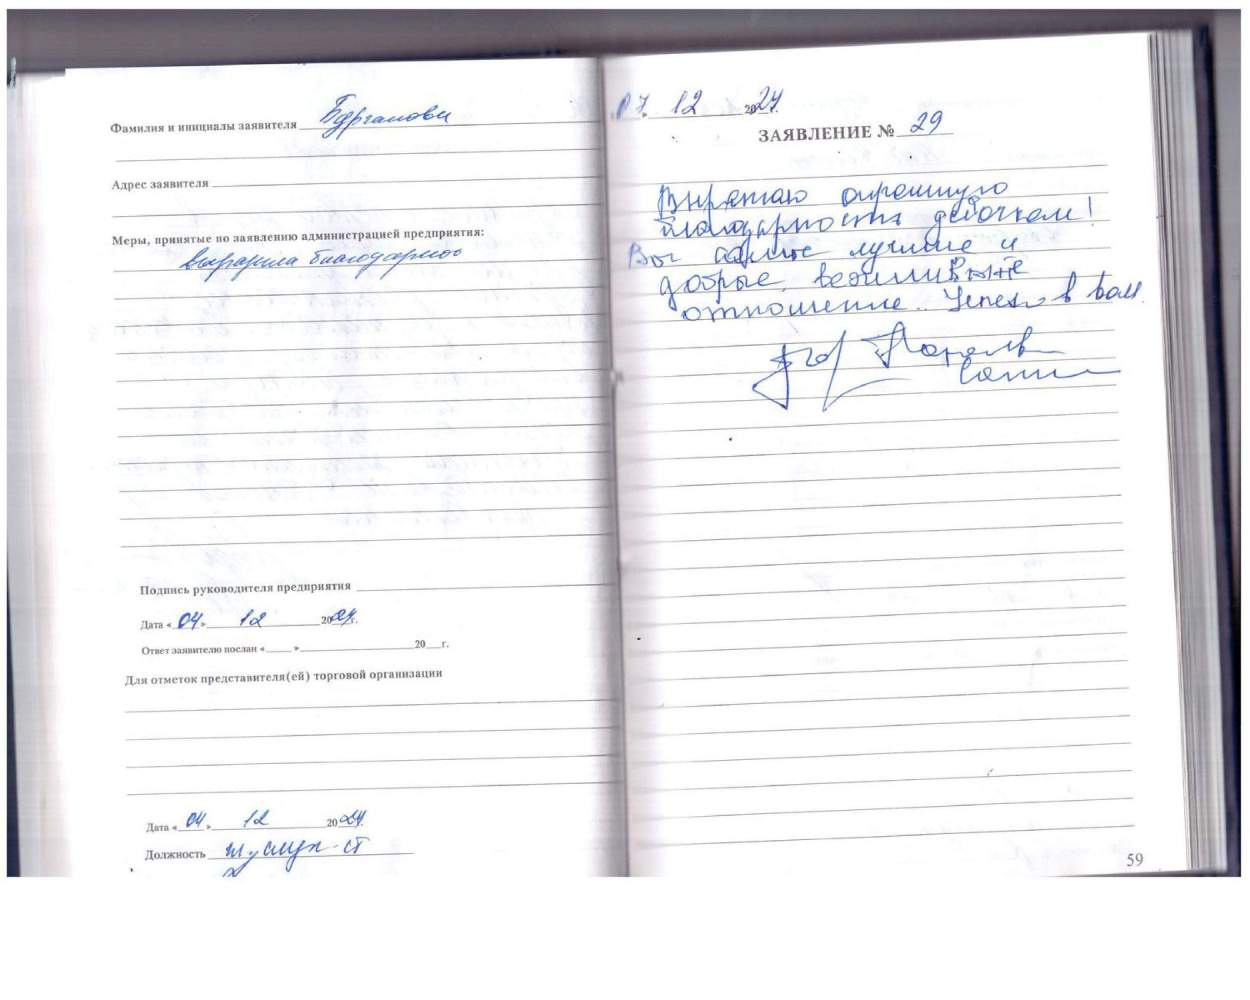 Фамилия и инициалы заявителя
Адрес заявителя
Меры, принятые по заявлению администрацией предприятия:
выразила благодарнос
Подпись руководителя предприятия
Дата «04» 12 2024г.
Ответ заявителю послан «   »   20   г.
Для отметок представителя(ей) торговой организации
Дата «04» 12 2024г.
Должность
12 2024г.
ЗАЯВЛЕНИЕ № 29
Выражаю огромную
благодарность девочкам!
Вы самые лучшие и
добрые, вежливые
отношение.. Успехов вам.
59